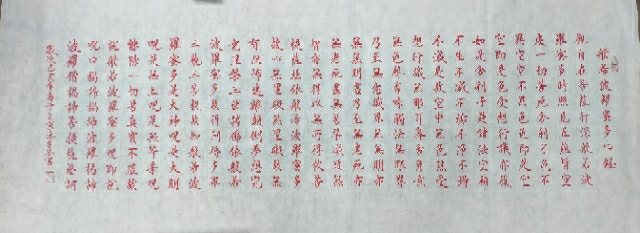 般若波羅蜜多心經
觀自在菩薩行深般若波
羅蜜多時照見五蘊皆空
度一切苦厄舍利子色不
異空空不異色色即是空
空即是色受想行識亦復
如是舍利子是諸法空相
不生不滅不垢不淨不增
不減是故空中無色無受
想行識無眼耳鼻舌身意
無色聲香味觸法無眼界
乃至無意識界無無明亦
無無明盡乃至無老死亦
無老死盡無苦集滅道無
智亦無得以無所得故菩
提薩埵依般若波羅蜜多
故心無罣礙無罣礙故無
有恐怖遠離顛倒夢想究
竟涅槃三世諸佛依般若
波羅蜜多故得阿耨多羅
三藐三菩提故知般若波
羅蜜多是大神呪是大明
呪是無上呪是無等等呪
能除一切苦真實不虛故
說般若波羅蜜多呪即說
呪曰揭諦揭諦波羅揭諦
波羅僧揭諦菩提薩婆訶